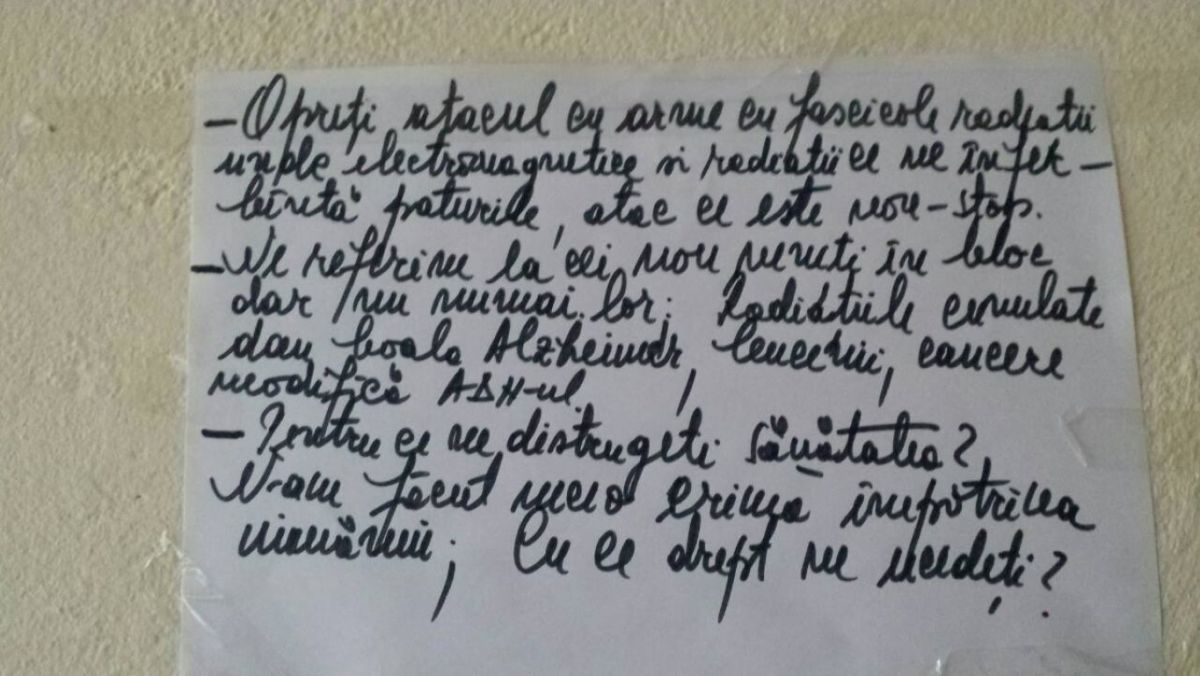 – Opreți atacul cu arme cu fascicole radiatii
unple electromagnetice si radiatii ce ne înfer–
bîntă paturile, atac ce este non-stop.
– Ne referim la cei nou veniti în bloc
dar nu numai lor; Radiatiile cumulate
dau boala Alzheimer, leucemii, cancere
modifică ADN-ul.
– Pentru ce ne distrugeti sănătatea?
N-am făcut nicio crimă împotriva
nimănui; Cu ce drept ne ucideți?